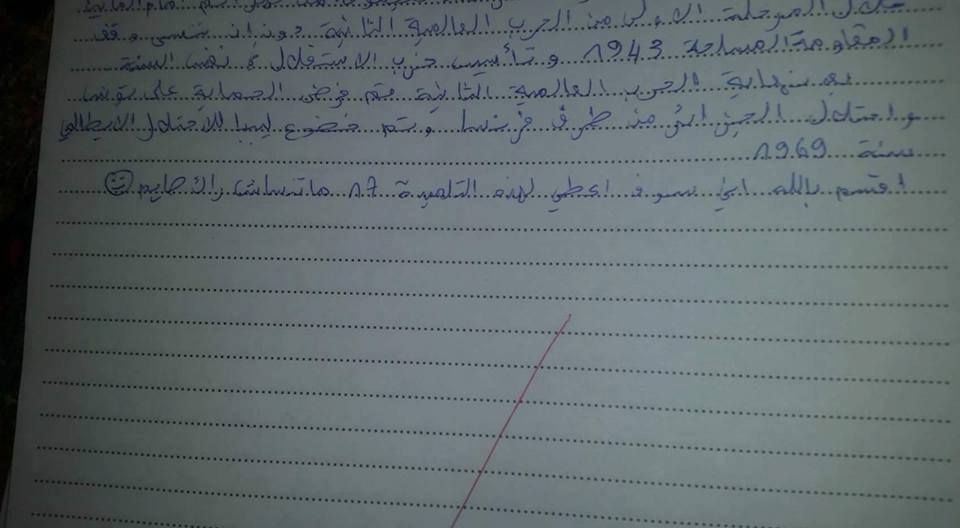 خلال المرحلة الاولى من الحرب العالمية الثانية دون ان ننسى وقف
المقاومة المسلحة 1943 وتأسيس حزب الاستقلال في نفس السنة
بعد نهاية الحرب العالمية الثانية فتم فرض الحماية على تونس
واحتلال الجزائر من طرف فرنسا وتم خضوع ليبيا للاحتلال الايطالي
سنة 1969
اقسم بالله اني سوف اعطي لهذه التلميذة 17 ماتنساش راك صايم ☺